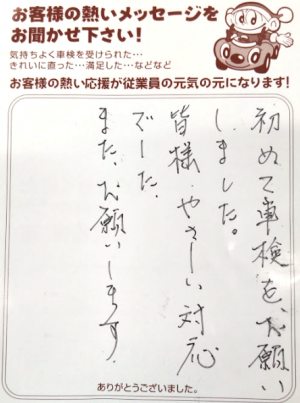 お客様の熱いメッセージを
お聞かせ下さい!
気持ちよく車検を受けられた…
きれいに直った…満足した…などなど
お客様の熱い応援が従業員の元気の元になります!
初めて車検を、お願い
しました。
皆様、やさしい対応
でした。
また、お願いします。
ありがとうございました。